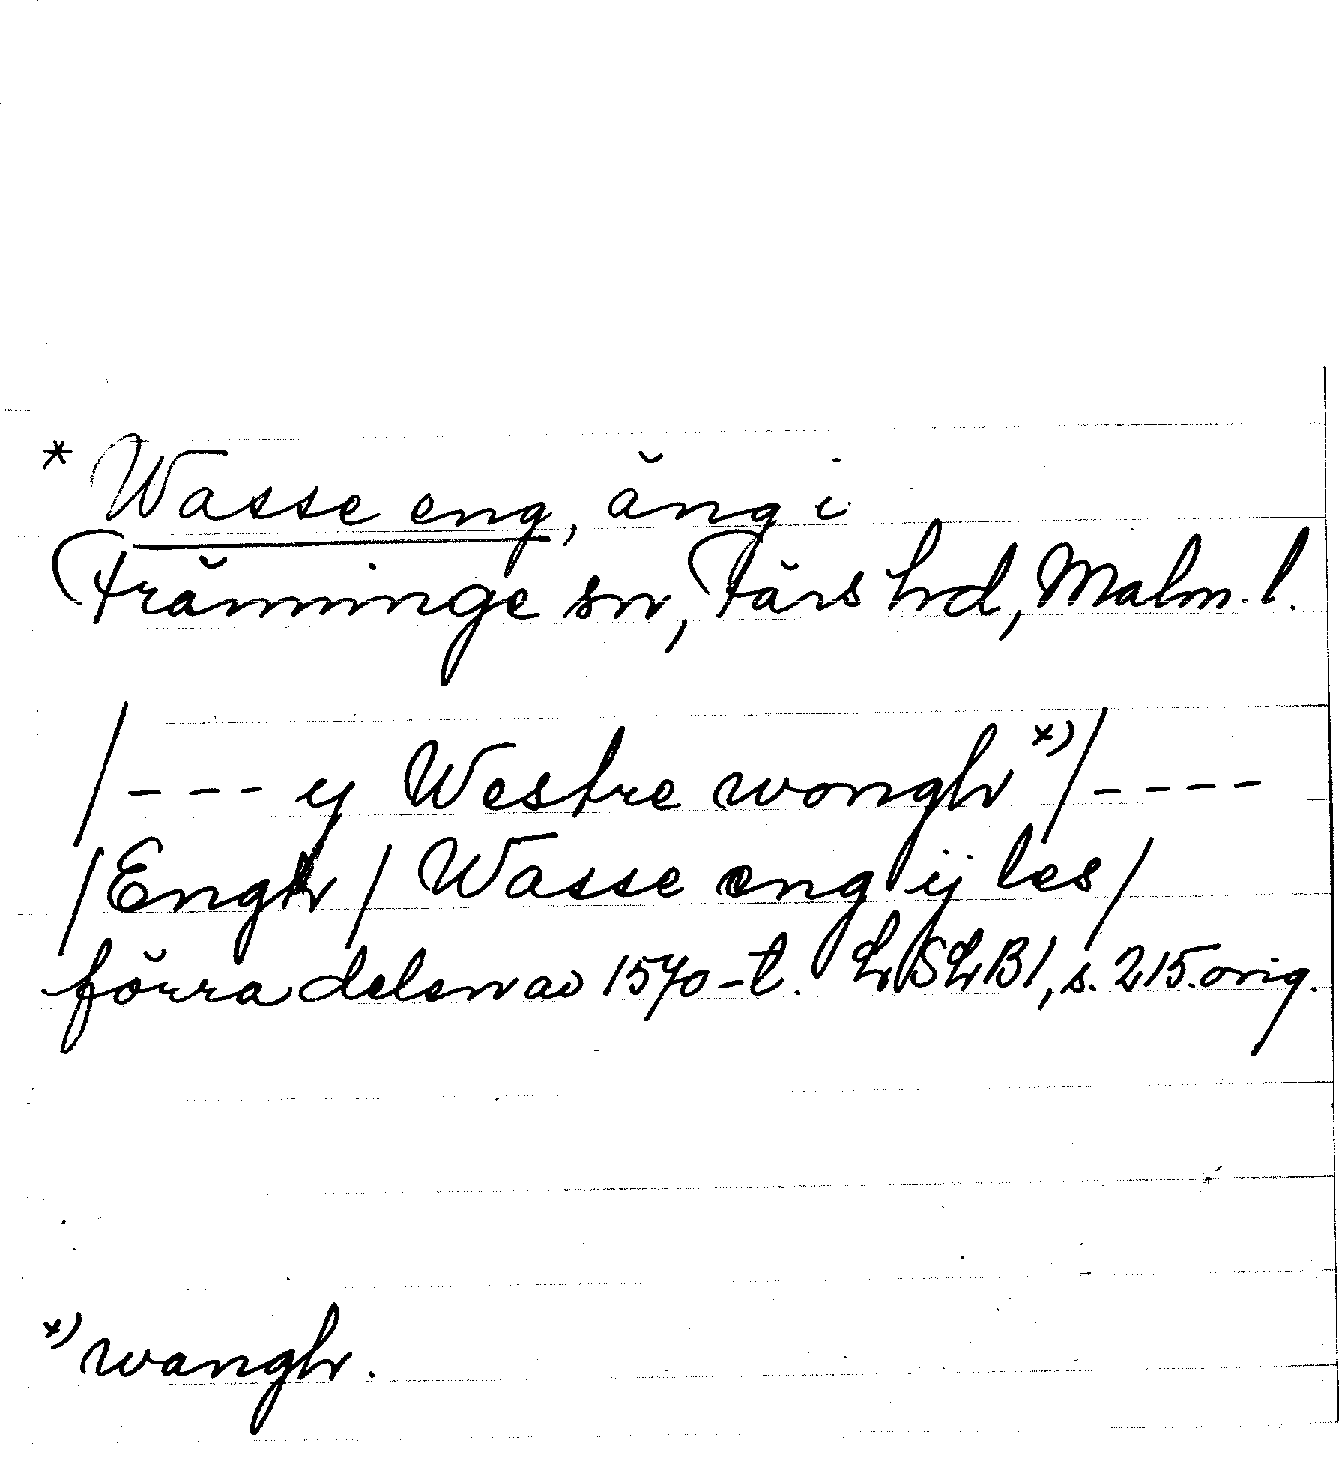 * Wasse eng, äng i
Tränninge sn, Färs hd, Malm. l.
/ - - - y Westre wongh *) / - - - -
/ Engh / Wasse eng ij les /
förra delen av 1570-t. LLSLB1, s. 215. orig.
*) wangh.